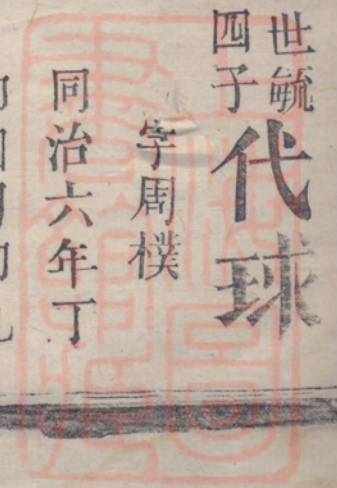 世毓
四子
代球
字周樸
同治六年丁